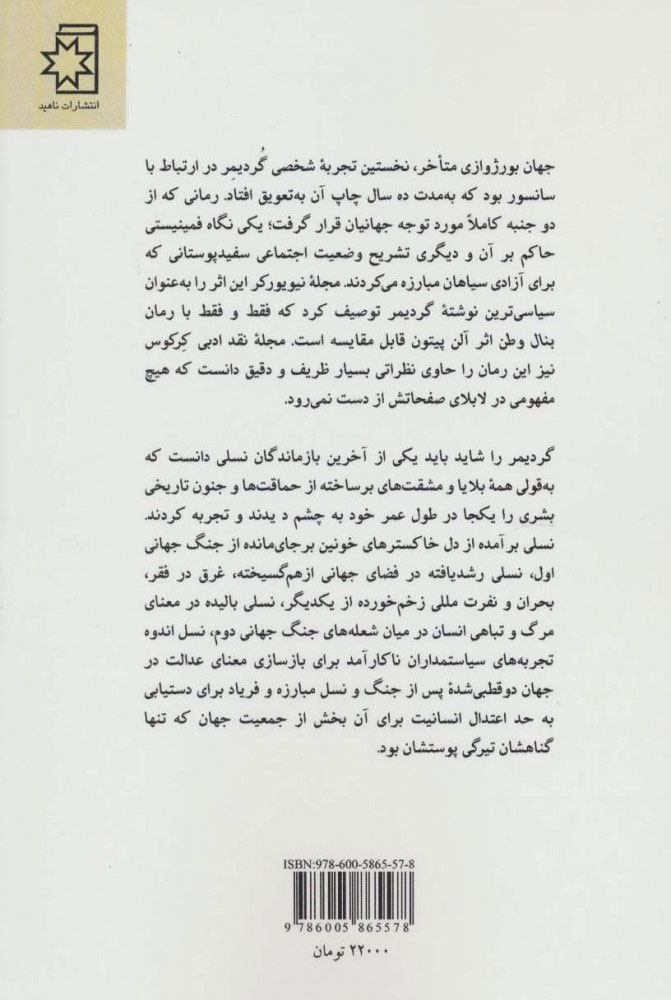 انتشارات ناهید
جهان بورژوازی متأخر، نخستین تجربهٔ شخصی گُردیمِر در ارتباط با
سانسور بود که به‌مدت ده سال چاپ آن به‌تعویق افتاد. رمانی که از
دو جنبه کاملاً مورد توجه جهانیان قرار گرفت؛ یکی نگاه فمینیستی
حاکم بر آن و دیگری تشریح وضعیت اجتماعی سفیدپوستانی که
برای آزادی سیاهان مبارزه می‌کردند. مجلهٔ نیویورکر این اثر را به‌عنوان
سیاسی‌ترین نوشتهٔ گردیمر توصیف کرد که فقط و فقط با رمان
بنال وطن اثر آلن پیتون قابل مقایسه است. مجلهٔ نقد ادبی کِرکوس
نیز این رمان را حاوی نظراتی بسیار ظریف و دقیق دانست که هیچ
مفهومی در لابلای صفحاتش از دست نمی‌رود.
گردیمر را شاید باید یکی از آخرین بازماندگان نسلی دانست که
به‌قولی همهٔ بلایا و مشقت‌های برساخته از حماقت‌ها و جنون تاریخی
بشری را یکجا در طول عمر خود به چشم د یدند و تجربه کردند.
نسلی برآمده از دل خاکسترهای خونین برجای‌مانده از جنگ جهانی
اول، نسلی رشدیافته در فضای جهانی ازهم‌گسیخته، غرق در فقر،
بحران و نفرت مللی زخم‌خورده از یکدیگر، نسلی بالیده در معنای
مرگ و تباهی انسان در میان شعله‌های جنگ جهانی دوم، نسل اندوه
تجربه‌های سیاستمداران ناکارآمد برای بازسازی معنای عدالت در
جهان دوقطبی‌شدهٔ پس از جنگ و نسل مبارزه و فریاد برای دستیابی
به حد اعتدال انسانیت برای آن بخش از جمعیت جهان که تنها
گناهشان تیرگی پوستشان بود.
ISBN:978-600-5865-57-8
9 786005 865578
۲۲۰۰۰ تومان